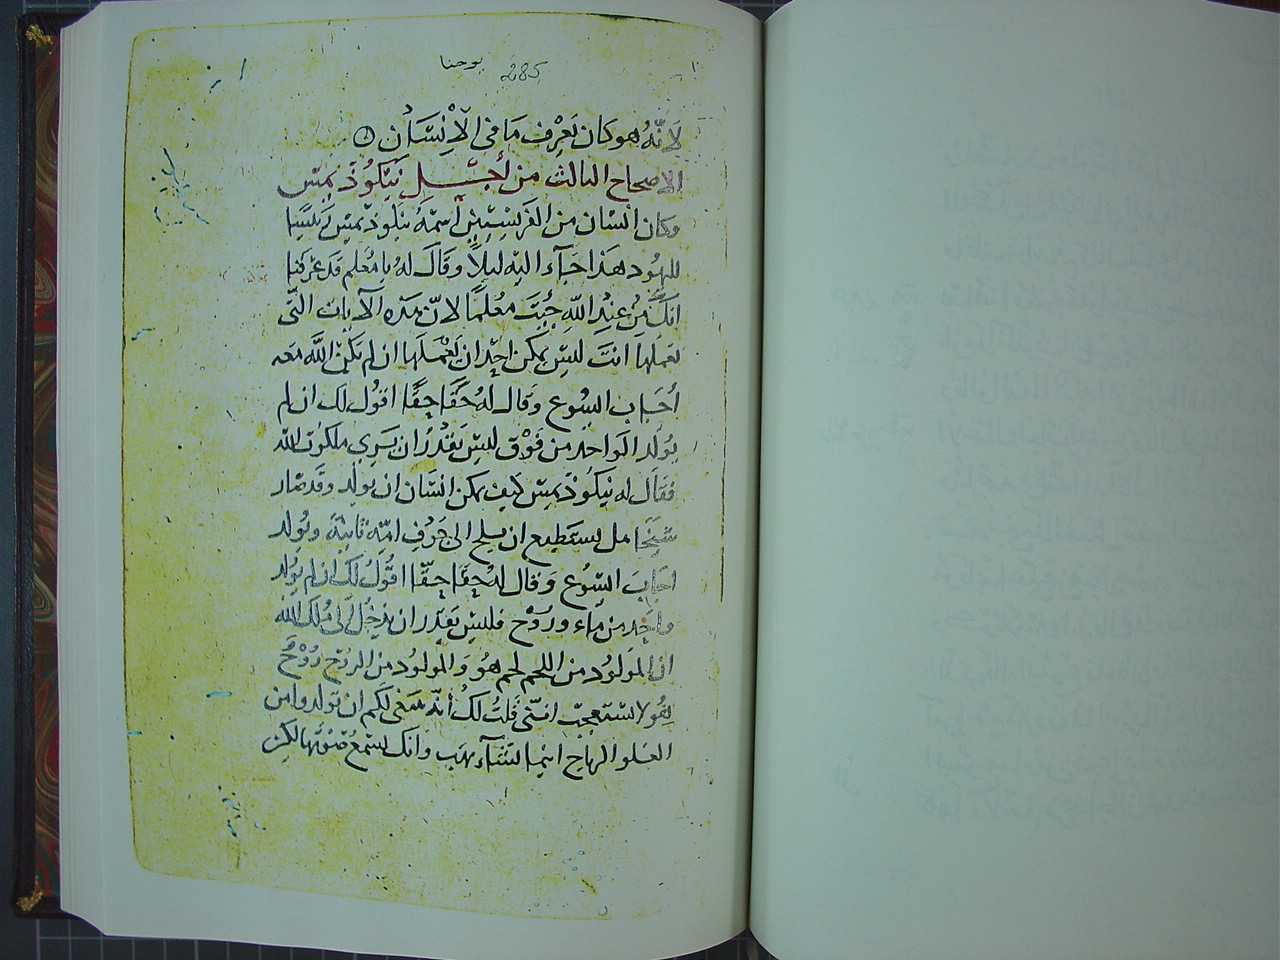 يوحنا 285
لَانّهُ هو كان يَعِرْف مَا فى الْاِنْسَان
الاصحاح الثالث من أجْل نَيَقوُدْ يمِسْ
وكان انسْان من الفَريسِيّين أسمهُ نيقوذ يميس رَئيسًا
لليهُود هَذا جَآء اليْه ليلًا وقَالَ لهُ يا مُعلم قد عَرفنا
انكَ مِنْ عِنْدِ اللّهِ جِئتَ مُعَلمًا لانّ هَذه الآيات التّى
تعَملهَا انتَ ليسْ يمكن احَد ان يَعْملَها ان لم يَكنْ اللّه معَه
أجَاب ايسُوع وقال لهُ حَقًا حَقًا اقولُ لك ان لم
يوُلد الَواحد من فَوْق ليسْ يَقدرُ ان يَرى ملكوت اللّه
فقَال له نيَكوذيميسْ كيف يمكن انسَان ان يولد وقد صَار
شيْخًا هل يستَطيع ان يلج الى جَوْف امّه ثَانيَة ويُولد
اجَابَ ايسُوع وَقال لهُ حَقًا حَقّا اقوُلُ لكَ ان لم يُولد
واحَد من مَاء ورُوْح فليسْ يَقدر ان يدخُل الى مُلك الله
ان المولوُد من اللحم لحم هُوَ وَالموُلوُد من الروُح رُوْحٌ
هُو لا تستعجبْ انّنى قَلتُ لكُ أنّه ينبغى لكم ان تولدوا من
العُلو الرياح اينما تشَآء تهَب وَانك تسْمَعُ صَوتها لكِن